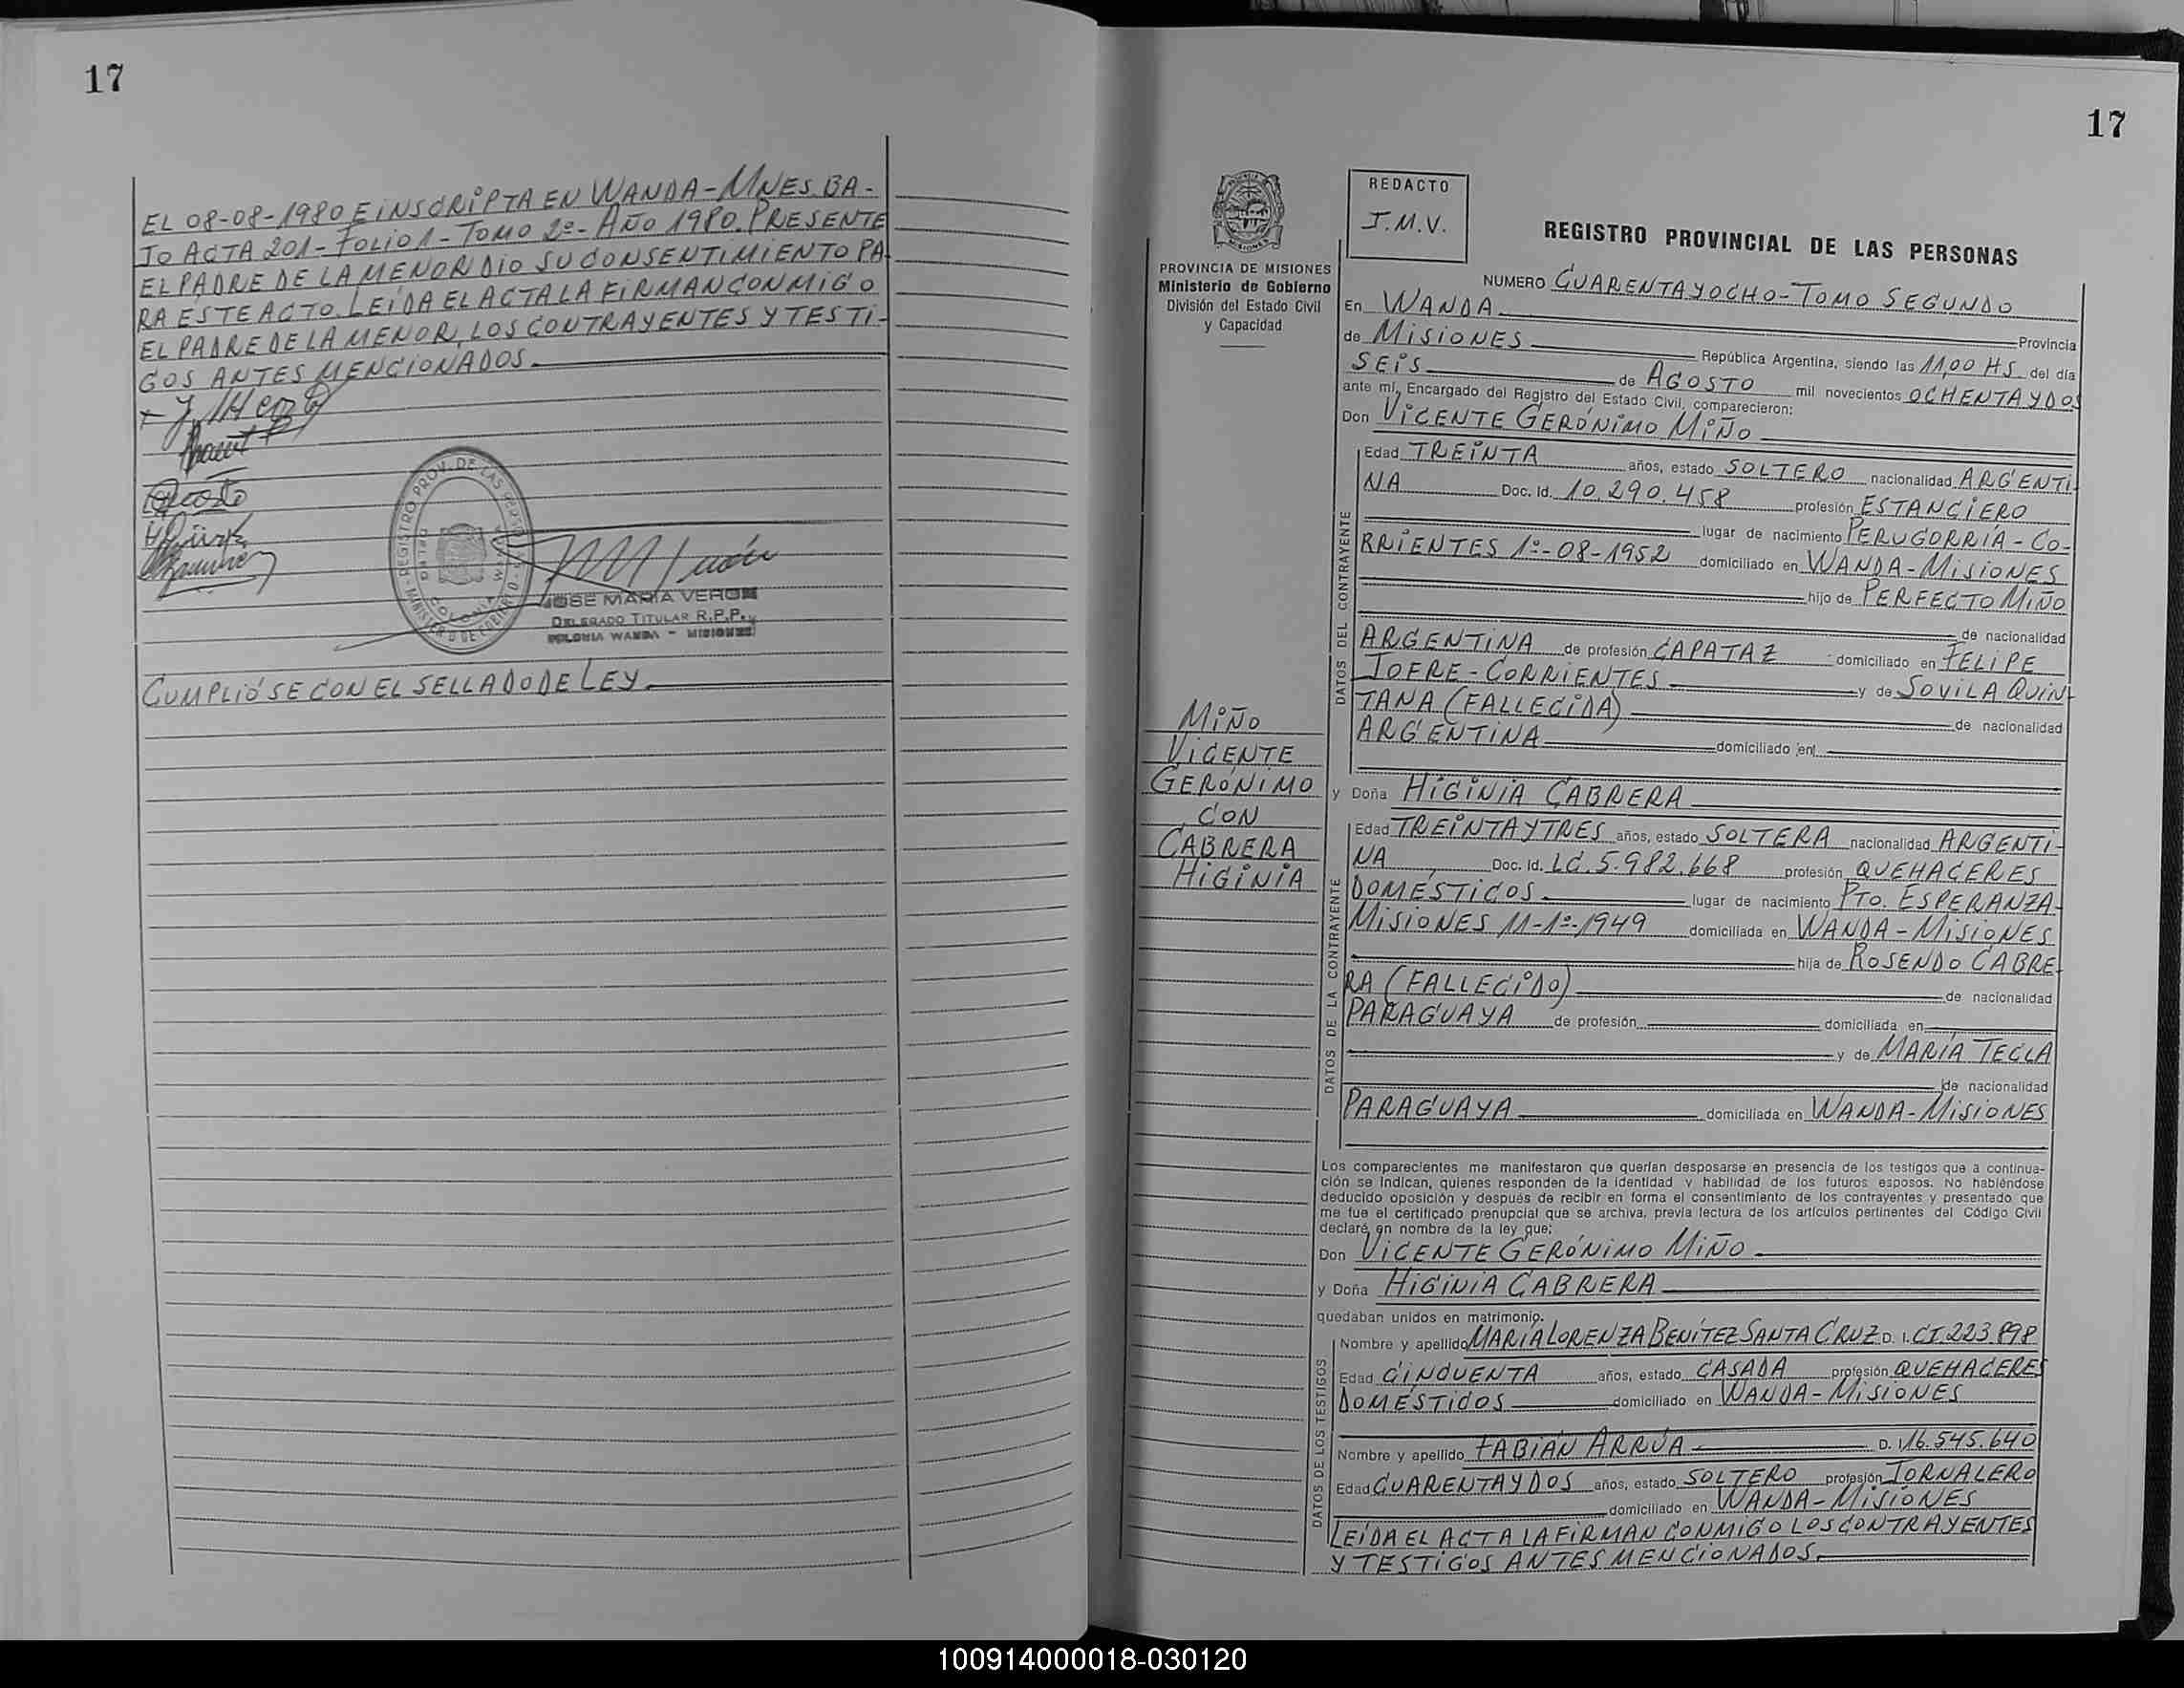 17
EL 08-08-1980 E INSCRIPTA EN WANDA-MNES. BA-
JO ACTA 201-FOLIO 1-TOMO 2º-AÑO 1980. PRESENTE
EL PADRE DE LA MENOR DIO SU CONSENTIMIENTO PA
RA ESTE ACTO. LEÍDA EL ACTA LA FIRMAN CONMIGO
EL PADRE DE LA MENOR, LOS CONTRAYENTES Y TESTI-
GOS ANTES MENCIONADOS.
JOSE MARIA VERON
DELEGADO TITULAR R.P.P.
COLONIA WANDA - MISIONES
CUMPLIÓSE CON EL SELLADO DE LEY.
17
PROVINCIA DE MISIONES
Ministerio de Gobierno
División del Estado Civil
y Capacidad
REDACTO
J.M.V.
REGISTRO PROVINCIAL DE LAS PERSONAS
NUMERO CUARENTA Y OCHO-TOMO SEGUNDO
En WANDA Provincia
de MISIONES República Argentina, siendo las 11,00 HS del día
SEIS de AGOSTO mil novecientos OCHENTA Y DOS
ante mí, Encargado del Registro del Estado Civil, comparecieron:
Don VICENTE GERÓNIMO MIÑO
DATOS DEL CONTRAYENTE
Edad TREINTA años, estado SOLTERO nacionalidad ARGENTI
NA Doc. Id. 10.290.458 profesión ESTANCIERO
lugar de nacimiento PERUGORRÍA-CO-
RRIENTES 1º-08-1952 domiciliado en WANDA-MISIONES
hijo de PERFECTO MIÑO
de nacionalidad
ARGENTINA de profesión CAPATAZ domiciliado en FELIPE
JOFRE-CORRIENTES y de SOVILA QUIN-
TANA (FALLECIDA) de nacionalidad
ARGENTINA domiciliado en
MIÑO
VICENTE
GERÓNIMO
CON
CABRERA
HIGINIA
y Doña HIGINIA CABRERA
DATOS DE LA CONTRAYENTE
Edad TREINTA Y TRES años, estado SOLTERA nacionalidad ARGENTI-
NA Doc. Id. LC. 5.982.668 profesión QUEHACERES
DOMÉSTICOS lugar de nacimiento PTO. ESPERANZA-
MISIONES 11-1º-1949 domiciliada en WANDA-MISIONES
hija de ROSENDO CABRE-
RA (FALLECIDO) de nacionalidad
PARAGUAYA de profesión domiciliada en
y de MARÍA TECLA
de nacionalidad
PARAGUAYA domiciliada en WANDA-MISIONES
Los comparecientes me manifestaron que querían desposarse en presencia de los testigos que a continua-
ción se indican, quienes responden de la identidad y habilidad de los futuros esposos. No habiéndose
deducido oposición y después de recibir en forma el consentimiento de los contrayentes y presentado que
me fue el certificado prenupcial que se archiva, previa lectura de los artículos pertinentes del Código Civil
declaré en nombre de la ley que:
Don VICENTE GERÓNIMO MIÑO
y Doña HIGINIA CABRERA
quedaban unidos en matrimonio.
DATOS DE LOS TESTIGOS
Nombre y apellido MARÍA LORENZA BENÍTEZ SANTA CRUZ D. I. CI. 223.898
Edad CINQUENTA años, estado CASADA profesión QUEHACERES
DOMÉSTICOS domiciliado en WANDA-MISIONES
Nombre y apellido FABIÁN ARRÚA D. I. 16.545.640
Edad CUARENTA Y DOS años, estado SOLTERO profesión JORNALERO
domiciliado en WANDA-MISIONES
LEÍDA EL ACTA LA FIRMAN CONMIGO LOS CONTRAYENTES
Y TESTIGOS ANTES MENCIONADOS.
100914000018-030120